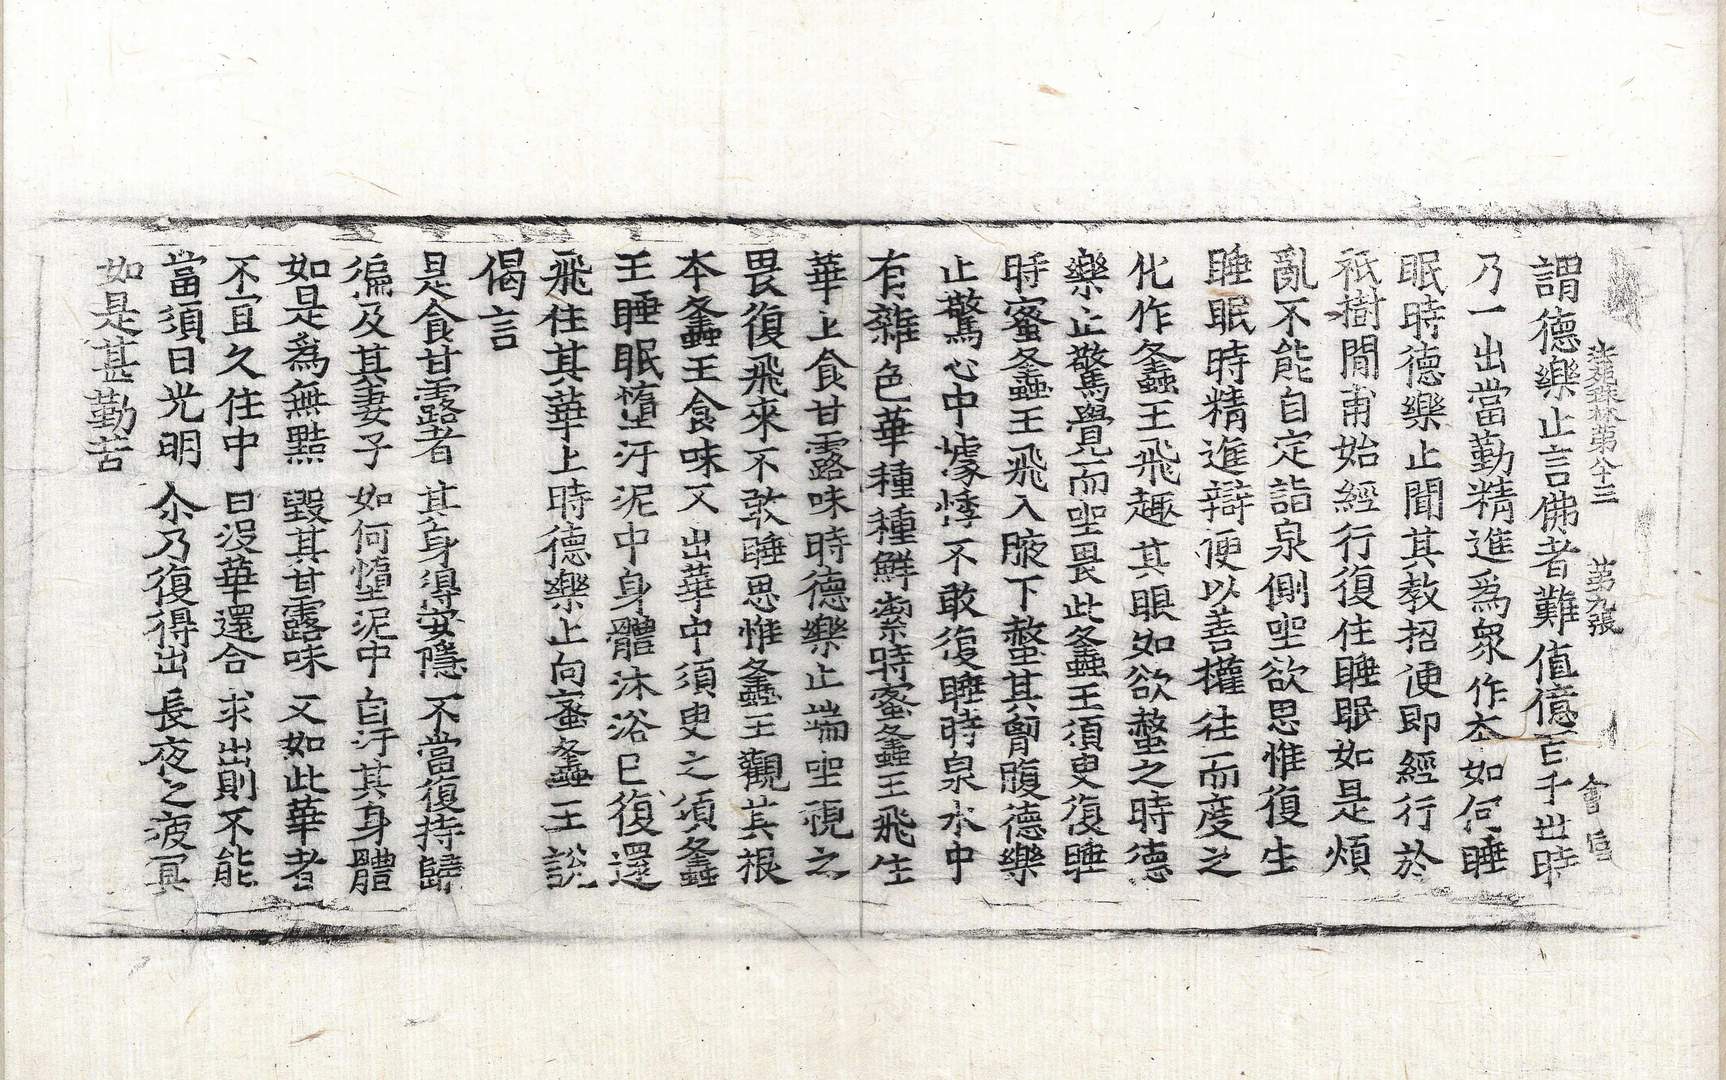 法苑珠林第八十三　第九張　　會
謂德樂止言佛者難值億百千世時
乃一出當勤精進爲衆作本如何睡
眠時德樂止聞其教招便即經行於
祇樹閒甫始經行復住睡眠如是煩
亂不能自定詣泉側坐欲思惟復生
睡眠時精進辯便以善權往而度之
化作蜂王飛趣其眼如欲螫之時德
樂止驚覺而坐畏此蜂王須臾復睡
時蜜蜂王飛入腋下螫其胷腹德樂
止驚心中懅悸不敢復睡時泉水中
有雜色華種種鮮㓗時蜜蜂王飛生
華上食甘露味時德樂止端坐視之
畏復飛來不敢睡思惟蜂王觀其根
本蜂王食味不出華中須臾之須蜂
王睡眠墮汙泥中身體沐浴已復還
飛住其華上時德樂止向蜜蜂王說
偈言
是食甘露者　其身得安隱　不當復持歸
徧及其妻子　如何墮泥中　自汙其身體
如是爲無黠　毀其甘露味　又如此華者
不宜久住中　日沒華還合　求出則不能
當須日光明　尒乃復得出　長夜之疲冥
如是甚勤苦